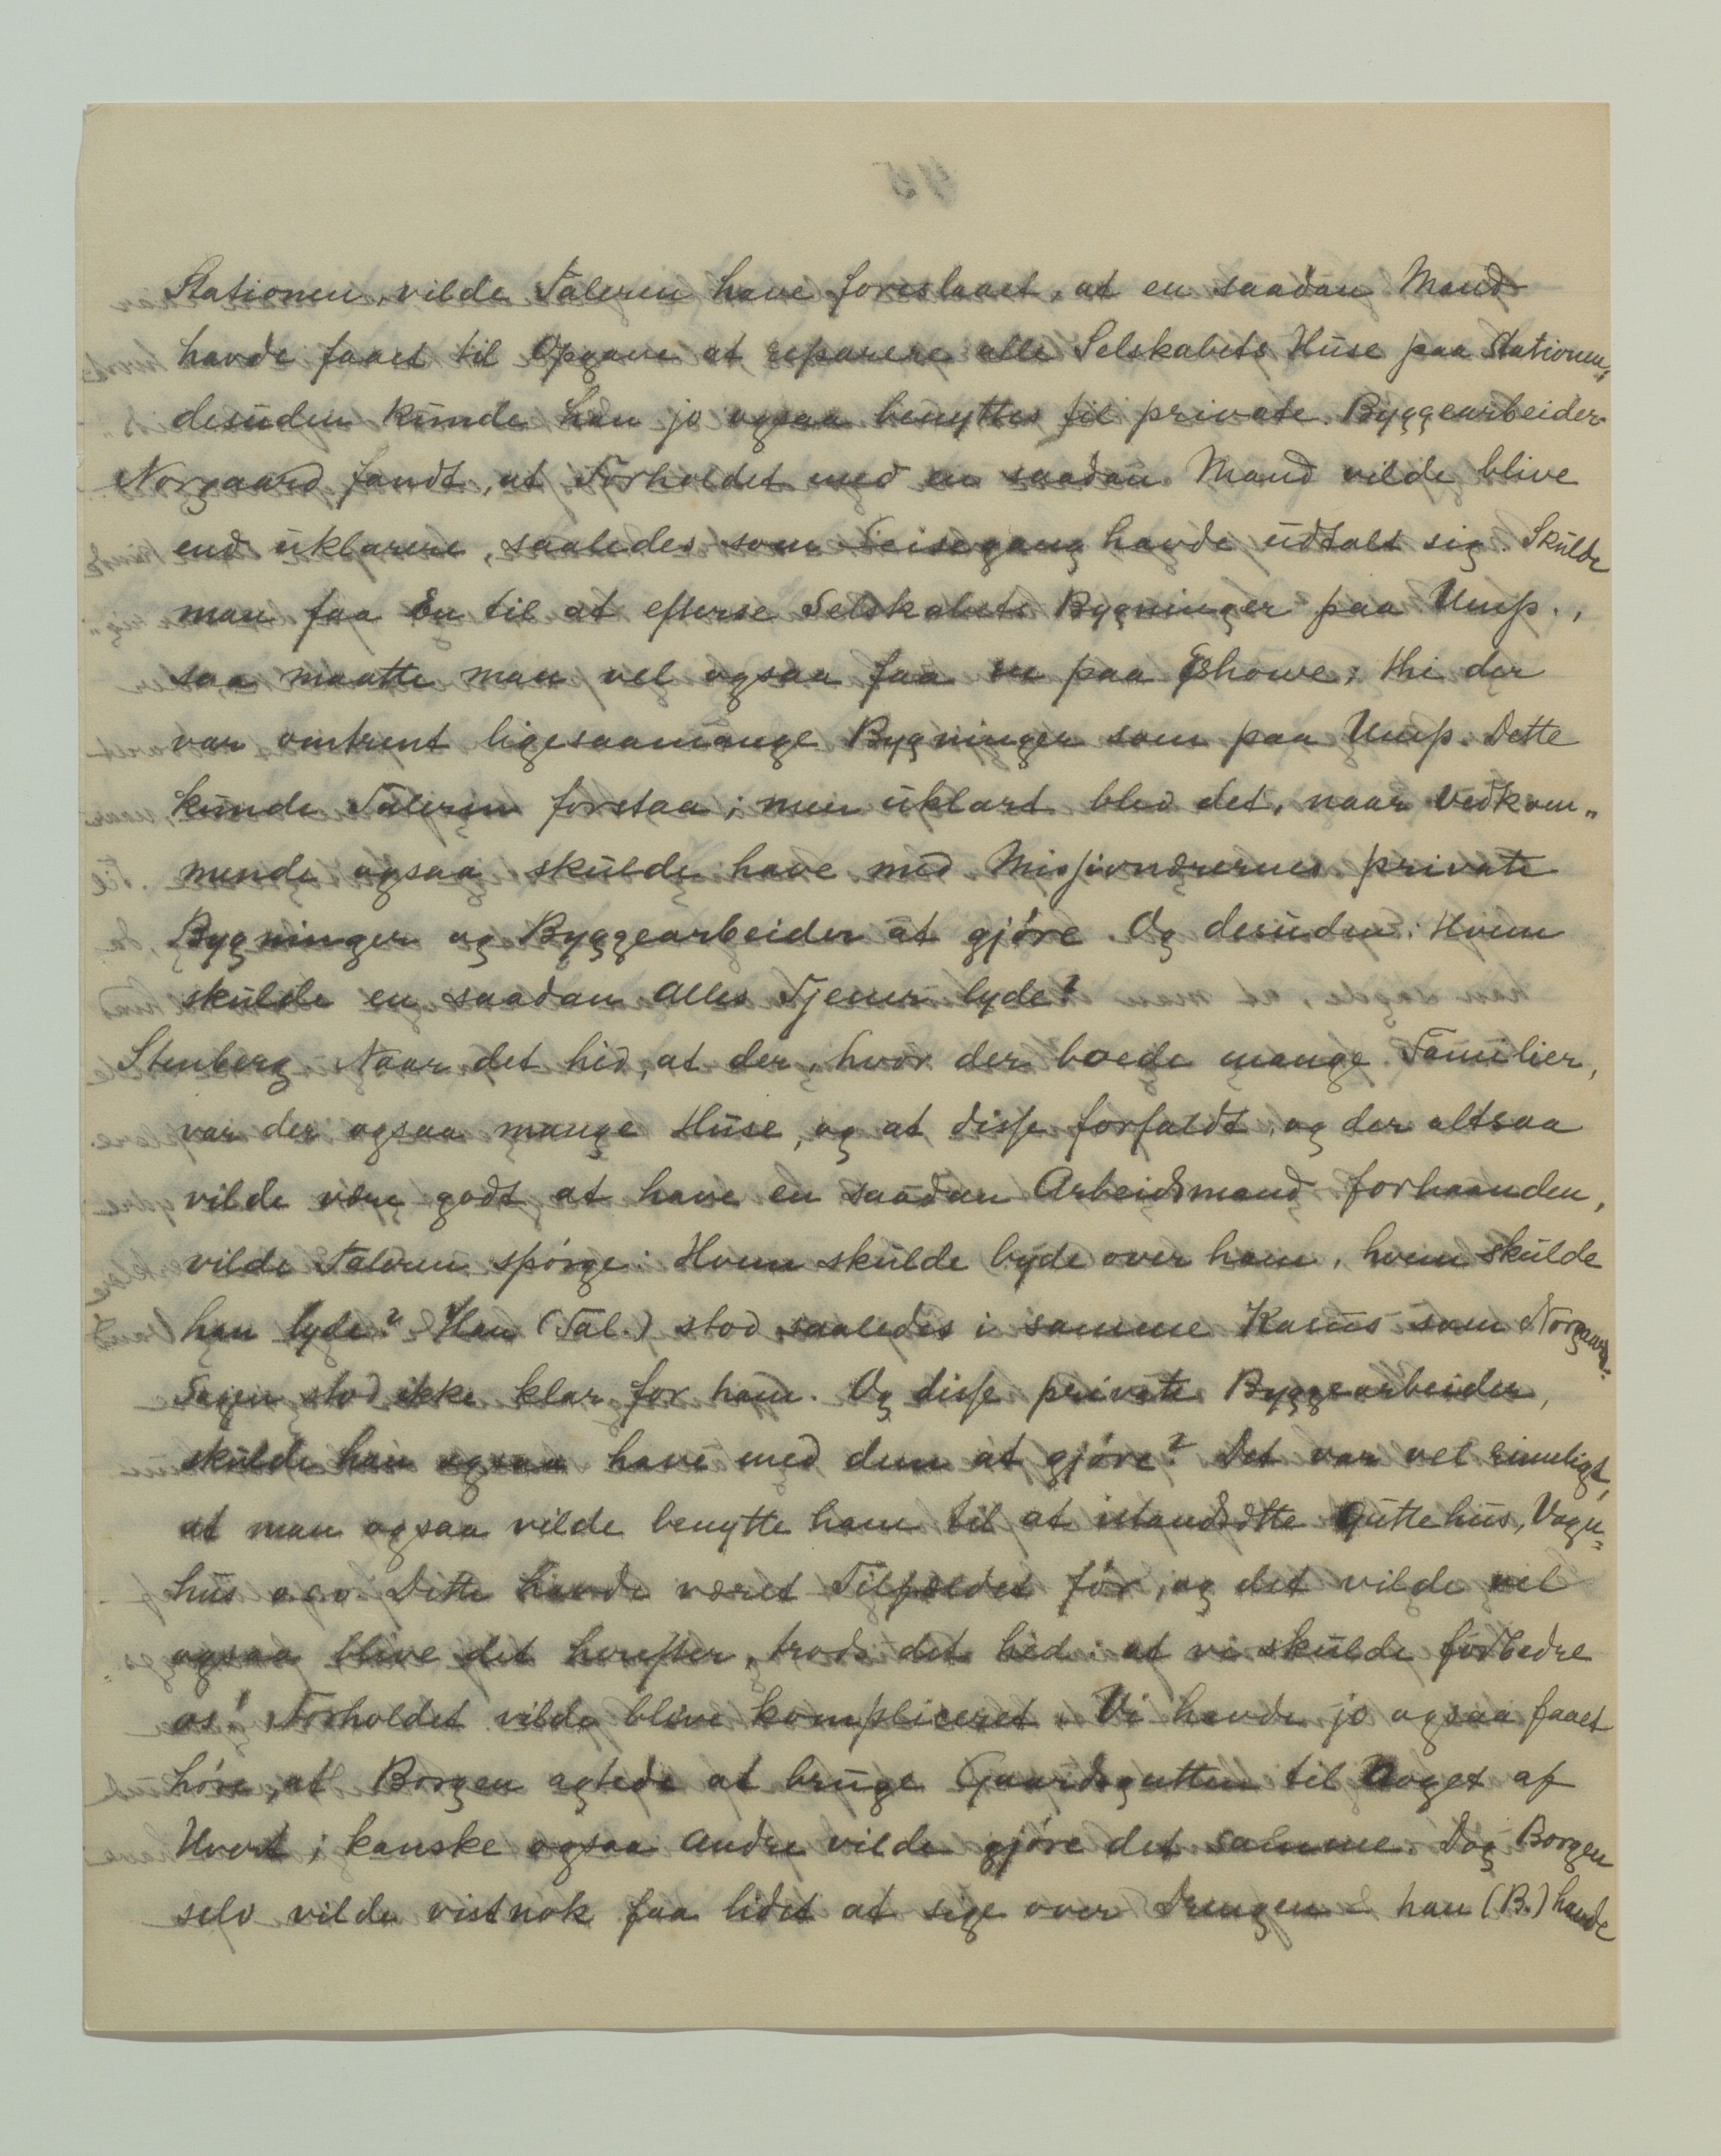 Stationen, vilde Taleren have foreslaaet, at en saadan Mand
havde faaet til Opgave at reparere alle Selskabets Huse paa Stationen;
desuden kunde han jo ogsaa benyttes til private Byggearbeider.
Norgaard fandt, at Forholdet med en saadan Mand vilde blive
end uklarere, saaledes som Leisegang havde udtalt sig. Skulde
man faa En til at efterse Selskabets Bygninger paa Ump.,
saa maatte man vel ogsaa faa en paa Eshowe; thi der
var omtrent ligesaamange Bygninger som paa Ump. Dette
kunde Taleren forstaa; men uklart blev det, naar Vedkom„
mende ogsaa skulde have med Missionærernes private
Bygninger og Byggearbeider at gjøre. Og desuden: Hvem
skulde en saadan Alles Tjener lyde?
Stenberg Naar det hed, at der, hvor der boede mange Familier,
var der ogsaa mange Huse, og at disse forfaldt, og der altsaa
vilde være godt at have en saadan Arbeidsmand forhaanden,
vilde Taleren spørge: Hvem skulde byde over ham, hvem skulde
han lyde? Han (Tal.) stod saaledes i samme Kasus som Norgaard.
Sagen stod ikke klar for ham. Og disse private Byggearbeider,
skulde han ogsaa have med dem at gjøre? Det var vel rimeligt,
at man ogsaa vilde benytte ham til at istandsætte Guttehus, Vogn=
hus osv. Dette havde været Tilfældet før, og det vilde vel
ogsaa blive det herefter, trods det hed: at vi skulde forbedre
os! Forholdet vilde blive kompliceret. Vi havde jo ogsaa faaet
høre, at Borgen agtede at bruge Gaardsgutten til Noget af
Hvert; kanske ogsaa Andre vilde gjøre det samme. Dog Borgen
selv vilde vistnok faa lidet at sige over Drengen – han (B.) havde